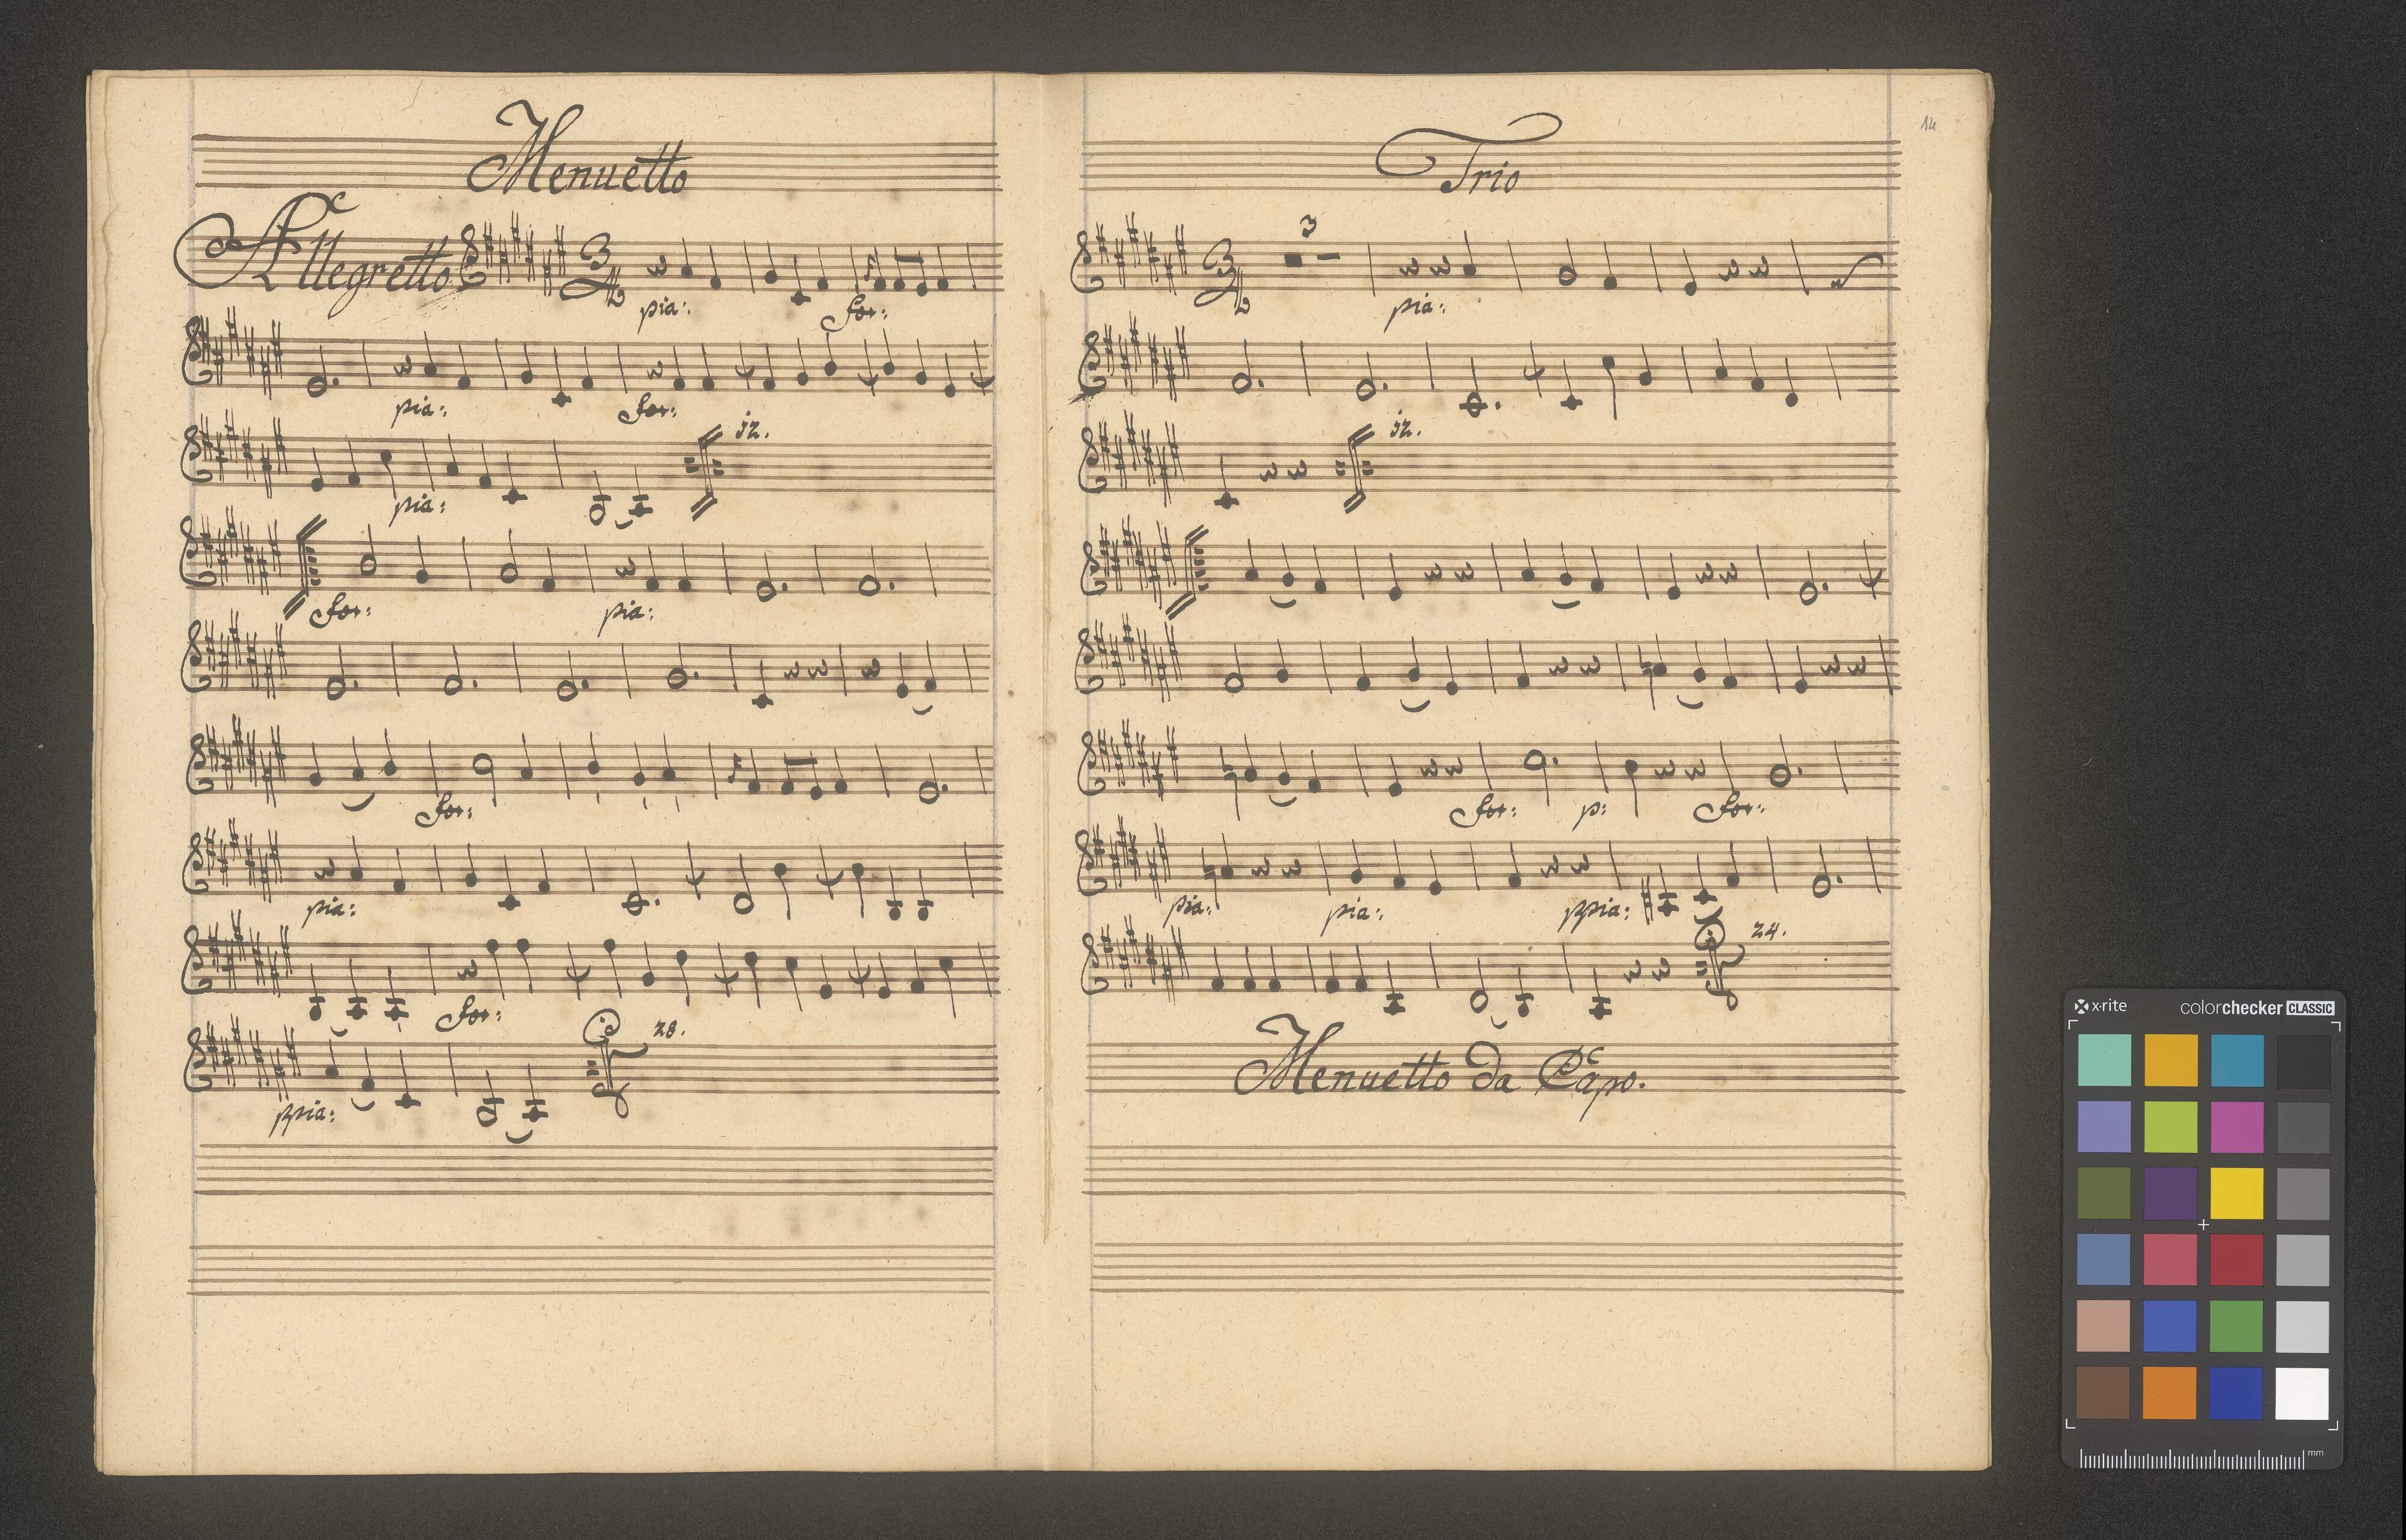 Menuetto
Allegretto
3
4
pia:
for:
pia:
for:
12.
pia:
for:
pia:
for:
pia:
for:
28.
ppia:
14
Trio
3
3
4
pia:
12.
for: p: for:
pia: pia: ppia:
24.
Menuetto da Capo.
x-rite colorchecker CLASSIC
mm